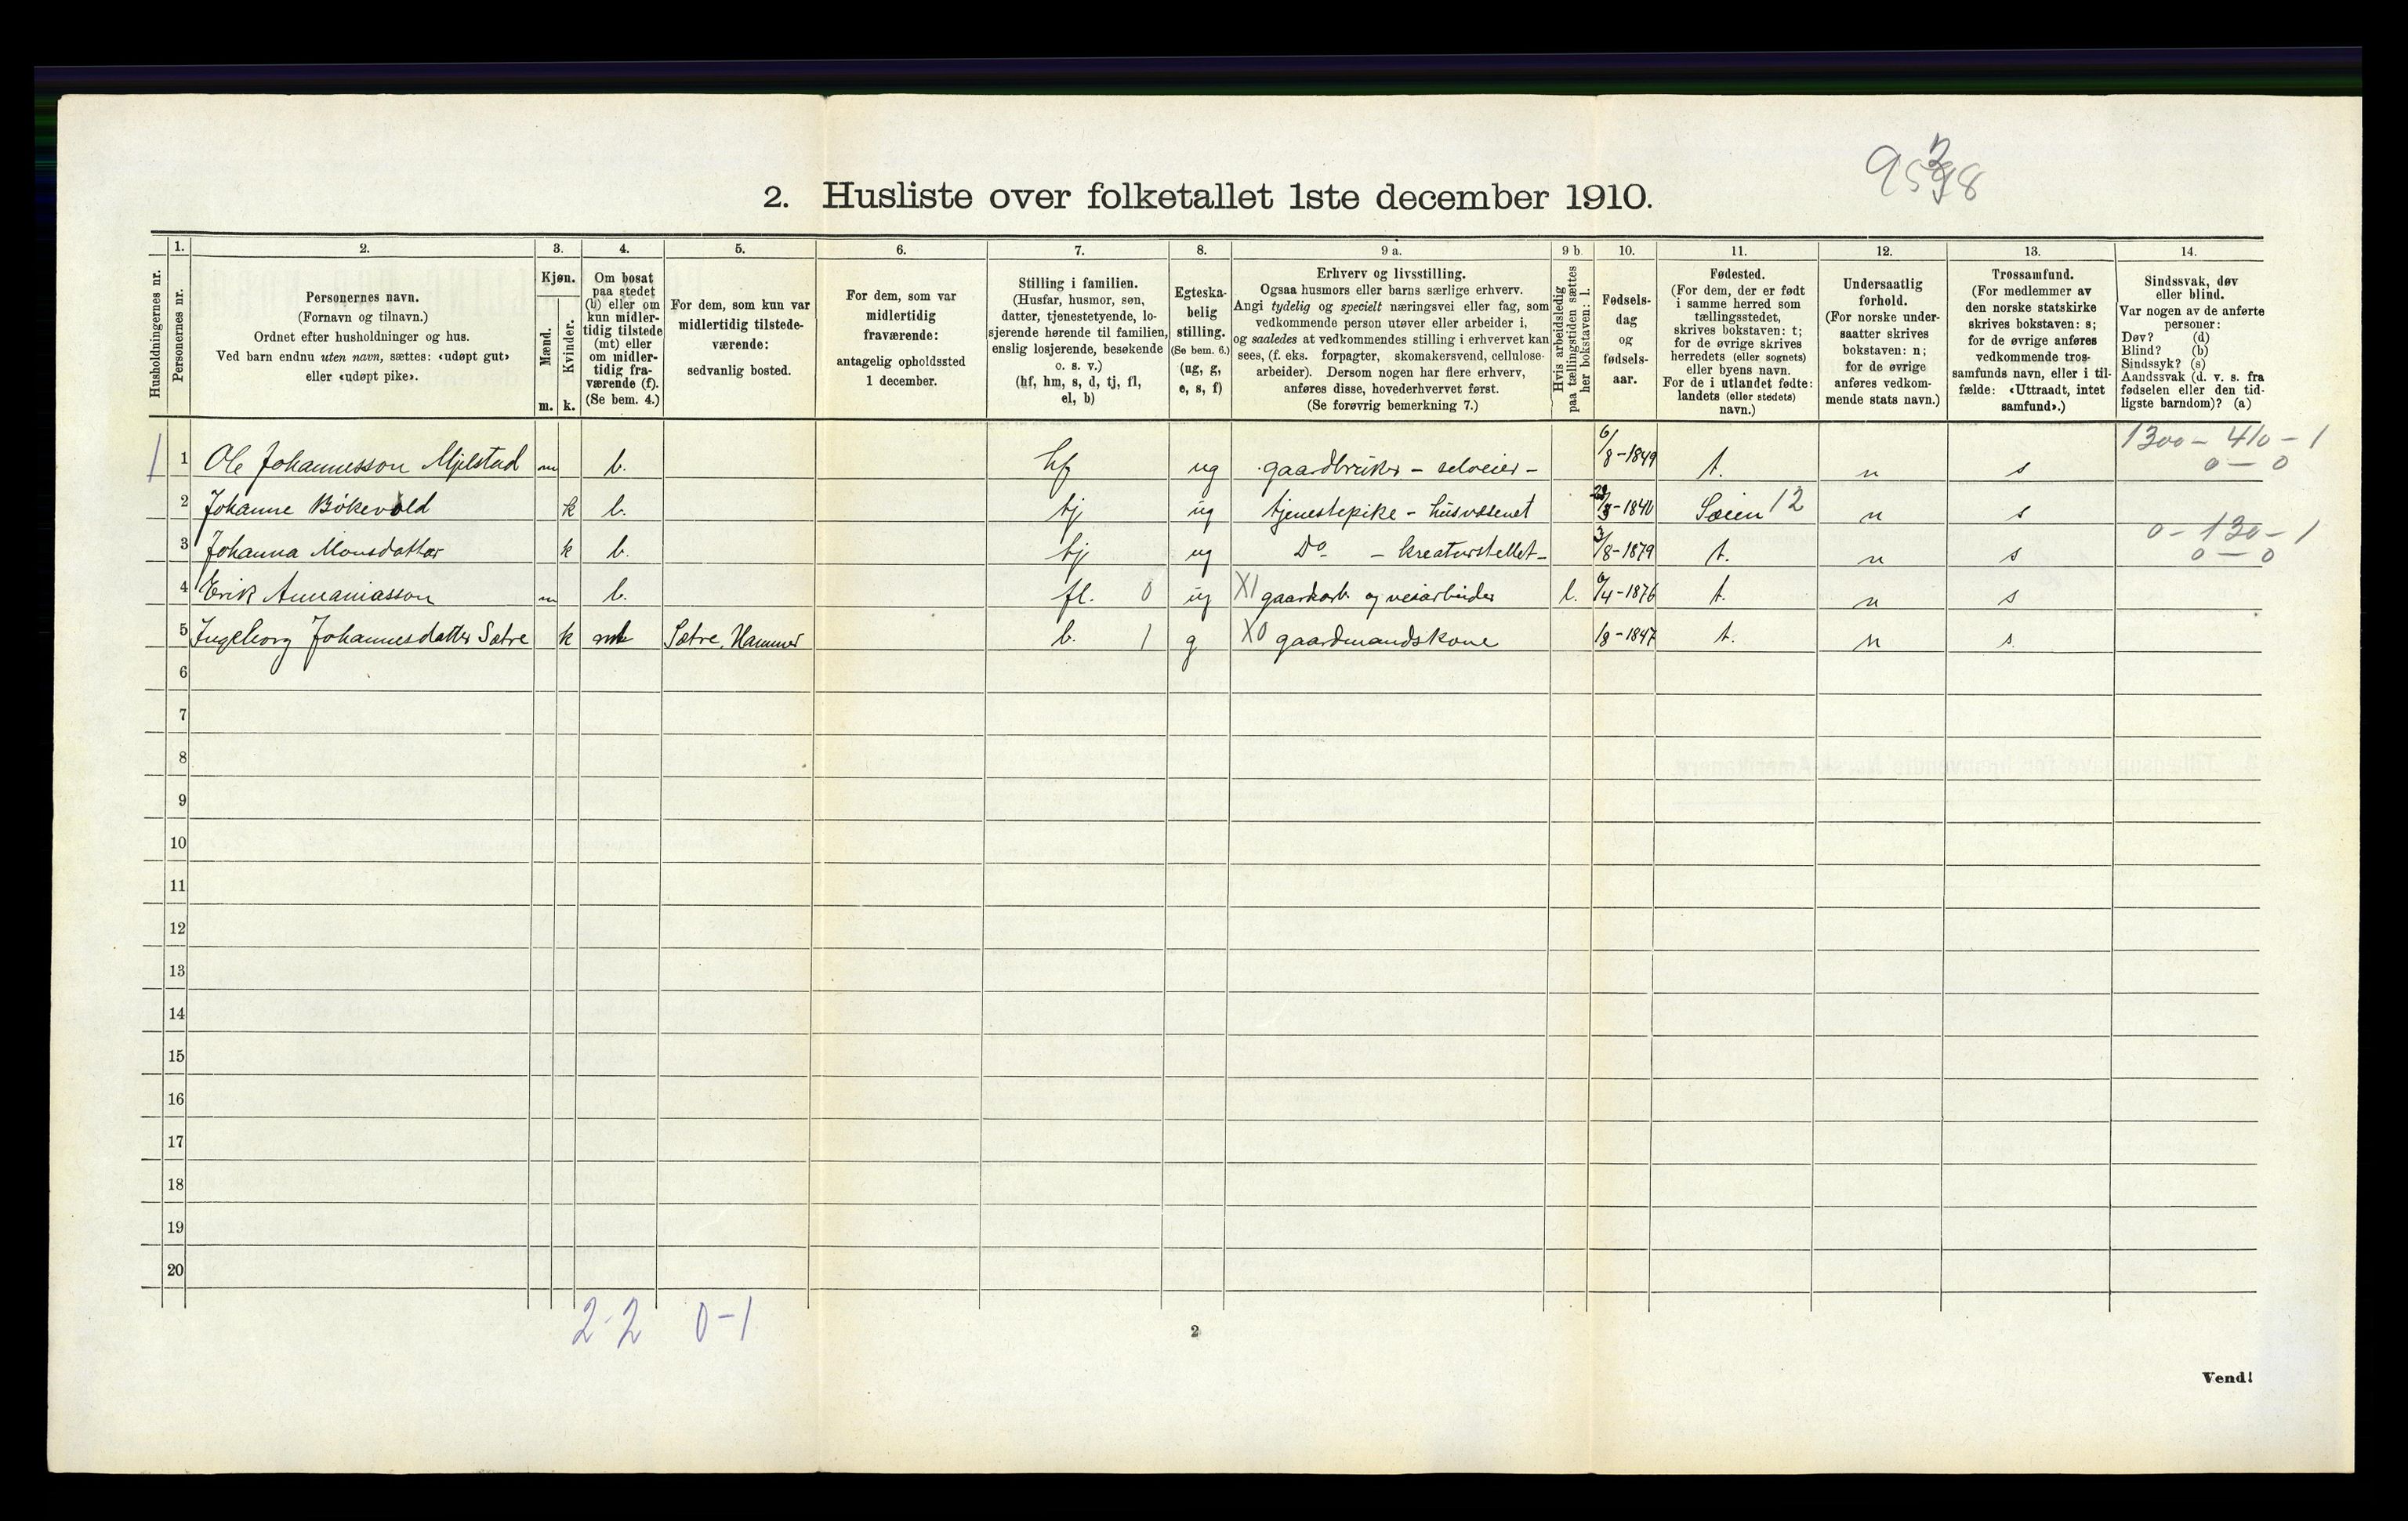 2. Husliste over folketallet 1ste december 1910.
Husholdningernes nr.
1.
Personernes nr.
2.
Personernes navn.
(Fornavn og tilnavn.)
Ordnet efter husholdninger og hus.
Ved barn endnu uten navn, sættes: «udøpt gut»
eller «udøpt pike».
3.
Kjøn.
Mænd.
Kvinder.
m. k.
4.
Om bosat
paa stedet
(b) eller om
kun midler-
tidig tilstede
(mt) eller
om midler-
tidig fra-
værende (f).
(Se bem. 4.)
5.
For dem, som kun var
midlertidig tilstede-
værende:
sedvanlig bosted.
6.
For dem, som var
midlertidig
fraværende:
antagelig opholdssted
1 december.
7.
Stilling i familien.
(Husfar, husmor, søn,
datter, tjenestetyende, lo-
sjerende hørende til familien,
enslig losjerende, besøkende
o. s. v.)
(hf, hm, s, d, tj, fl,
el, b)
8.
Egteska-
belig
stilling.
(Se bem. 6.)
(ug, g,
e, s, f)
9 a.
Erhverv og livsstilling.
Ogsaa husmors eller barns særlige erhverv.
Angi tydelig og specielt næringsvei eller fag, som
vedkommende person utøver eller arbeider i,
og saaledes at vedkommendes stilling i erhvervet kan
sees, (f. eks. forpagter, skomakersvend, cellulose-
arbeider). Dersom nogen har flere erhverv,
anføres disse, hovederhvervet først.
(Se forøvrig bemerkning 7.)
9 b.
Hvis arbeidsledig
paa tællingstiden sættes
her bokstaven: l.
10.
Fødsels-
dag
og
fødsels-
aar.
11.
Fødested.
(For dem, der er født
i samme herred som
tællingsstedet,
skrives bokstaven: t;
for de øvrige skrives
herredets (eller sognets)
eller byens navn.
For de i utlandet fødte:
landets (eller stedets)
navn.)
12.
Undersaatlig
forhold.
(For norske under-
saatter skrives
bokstaven: n;
for de øvrige
anføres vedkom-
mende stats navn.)
13.
Trossamfund.
(For medlemmer av
den norske statskirke
skrives bokstaven: s;
for de øvrige anføres
vedkommende tros-
samfunds navn, eller i til-
fælde: «Uttraadt, intet
samfund».)
14.
Sindssvak, døv
eller blind.
Var nogen av de anførte
personer:
Døv? (d)
Blind? (b)
Sindssyk? (s)
Aandssvak (d. v. s. fra
fødselen eller den tid-
ligste barndom)? (a)
1300 - 410 - 1
0 - 0
1 1 Ole Johannesson Mjelstad m b. hf ug gaardbruker - selveier - 6/8-1849 t. n s
2 Johanne Bökevold k b. tj ug tjenestepike - husvæsenet -1840 Sæim 12 n s
0 - 130 - 1
0 - 0
3 Johanna Monsdatter k b. tj ug Do - kreaturstellet - 3/8-1879 t. n s
4 Erik Annaniasson m b. fl. 0 ug X1 gaardarb. og veiarbeider l. 6/4-1876 t. n s
5 Ingeborg Johannesdatter Sætre k mt Sætre, Hammer b. 1 g X0 gaardmandskone 1/8-1847 t. n s.
6
7
8
9
10
11
12
13
14
15
16
17
18
19
20
2-2 0-1
2
Vend!